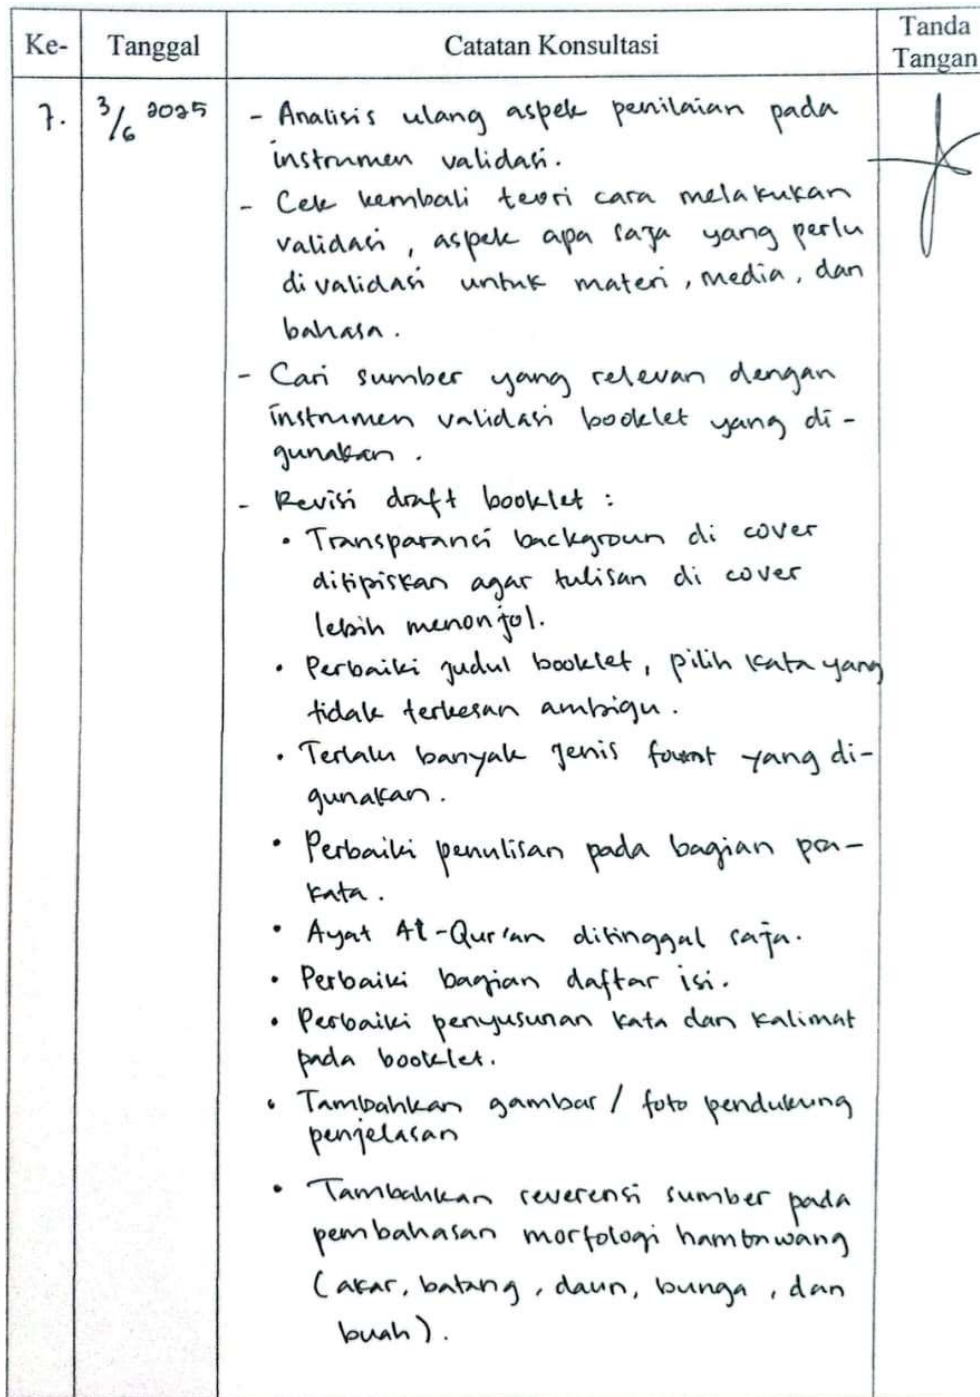 Ke- Tanggal Catatan Konsultasi Tanda Tangan
7. 3/6 2025 - Analisis ulang aspek penilaian pada
instrumen validasi.
- Cek kembali teori cara melakukan
validasi, aspek apa saja yang perlu
divalidasi untuk materi, media, dan
bahasa.
- Cari sumber yang relevan dengan
instrumen validasi booklet yang di-
gunakan.
- Revisi draft booklet :
• Transparansi backgroun di cover
ditipiskan agar tulisan di cover
lebih menonjol.
• Perbaiki judul booklet, pilih kata yang
tidak terkesan ambigu.
• Terlalu banyak jenis fount yang di-
gunakan.
• Perbaiki penulisan pada bagian pra-
kata.
• Ayat Al-Qur'an ditinggal saja.
• Perbaiki bagian daftar isi.
• Perbaiki penyusunan kata dan kalimat
pada booklet.
• Tambahkan gambar / foto pendukung
penjelasan
• Tambahkan reverensi sumber pada
pembahasan morfologi hambawang
(akar, batang, daun, bunga, dan
buah).